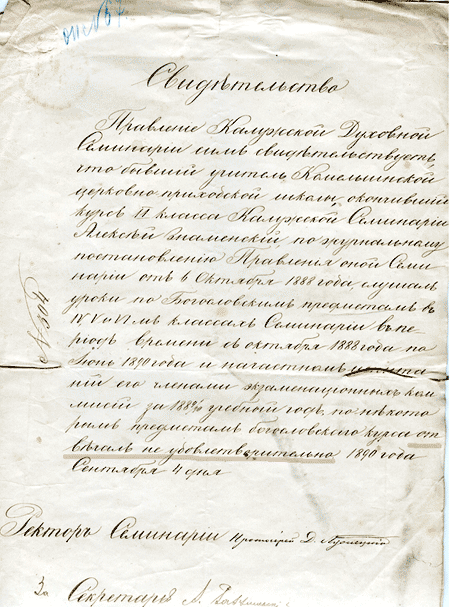 Свидѣтельство
Правленіе Калужской Духовной
Семинаріи симъ свидѣтельствуетъ,
что бывшій учитель
церковно-приходской школы, окончившій
курсъ II класса Калужской Семинаріи
Алексѣй Знаменскій по журнальному
постановленію Правленія оной Семи-
наріи отъ 6 Октября 1888 года, слушалъ
уроки по Богословскимъ предметамъ въ
IV, V и VI мъ классахъ Семинаріи въ пе-
ріодъ времени съ октября 1888 года по
Іюнь 1890 года и на частномъ испыта-
ніи его членами экзаменаціонныхъ ком-
мисій за 1889/90 учебной годъ, по нѣкото-
рымъ предметамъ богословскаго курса от-
вѣчалъ не удовлетворительно 1890 года
Сентября 4 дня
Ректоръ Семинаріи Протоіерей Д.
За Секретаря А.